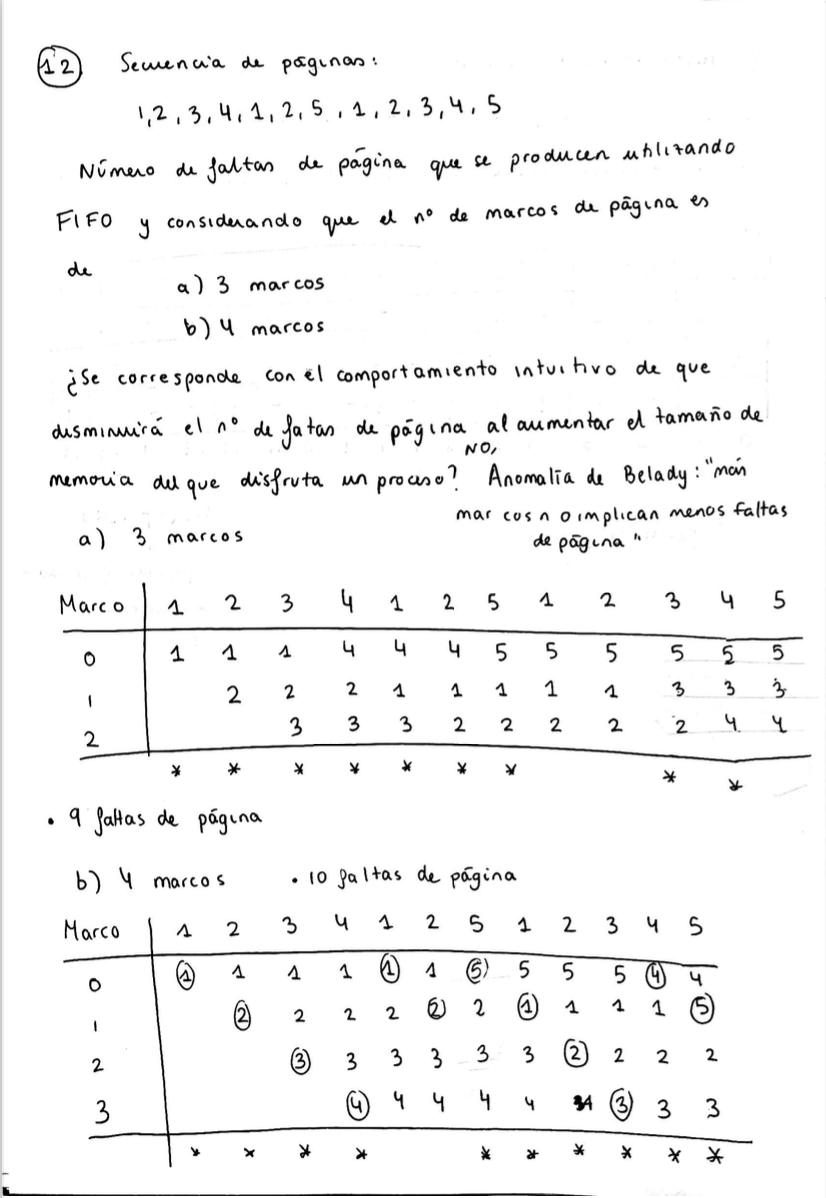 12 Secuencia de páginas:
1,2,3,4,1,2,5,1,2,3,4,5
Número de faltas de página que se producen utilizando
FIFO y considerando que el nº de marcos de página es
de
a) 3 marcos
b) 4 marcos
¿Se corresponde con el comportamiento intuitivo de que
disminuirá el nº de fatas de página al aumentar el tamaño de
memoria del que disfruta un proceso? NO, Anomalía de Belady: "más
marcos no implican menos faltas
de página"
a) 3 marcos
Marco 1 2 3 4 1 2 5 1 2 3 4 5
0 1 1 1 4 4 4 5 5 5 5 5 5
1 2 2 2 1 1 1 1 1 3 3 3
2 3 3 3 2 2 2 2 2 4 4
* * * * * * * * *
• 9 faltas de página
b) 4 marcos • 10 faltas de página
Marco 1 2 3 4 1 2 5 1 2 3 4 5
0 1 1 1 1 1 1 5 5 5 5 4 4
1 2 2 2 2 2 2 1 1 1 1 5
2 3 3 3 3 3 3 2 2 2 2
3 4 4 4 4 4 3 3 3
* * * * * * * * * *